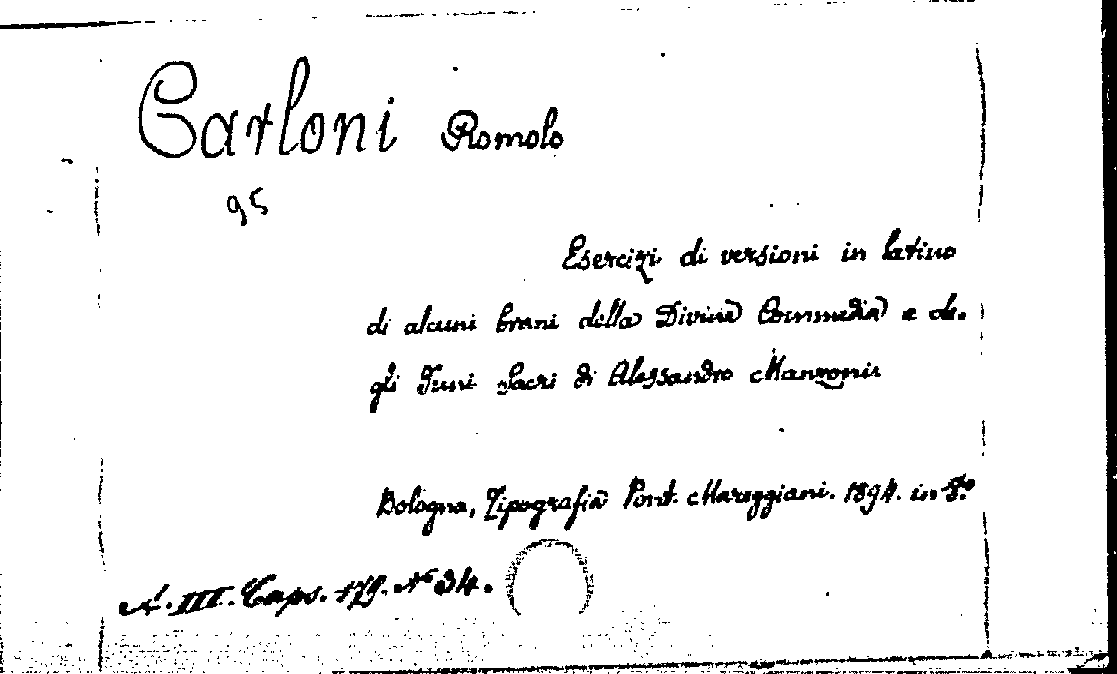 Carloni Romolo
95
Esercizi di versioni in latino
di alcuni brani della Divina Commedia e de-
gli Inni Sacri di Alessandro Manzoni
Bologna, Tipografia Pont. Mareggiani. 1894. in 8.º
A. III. Caps. 179. Nº 34.